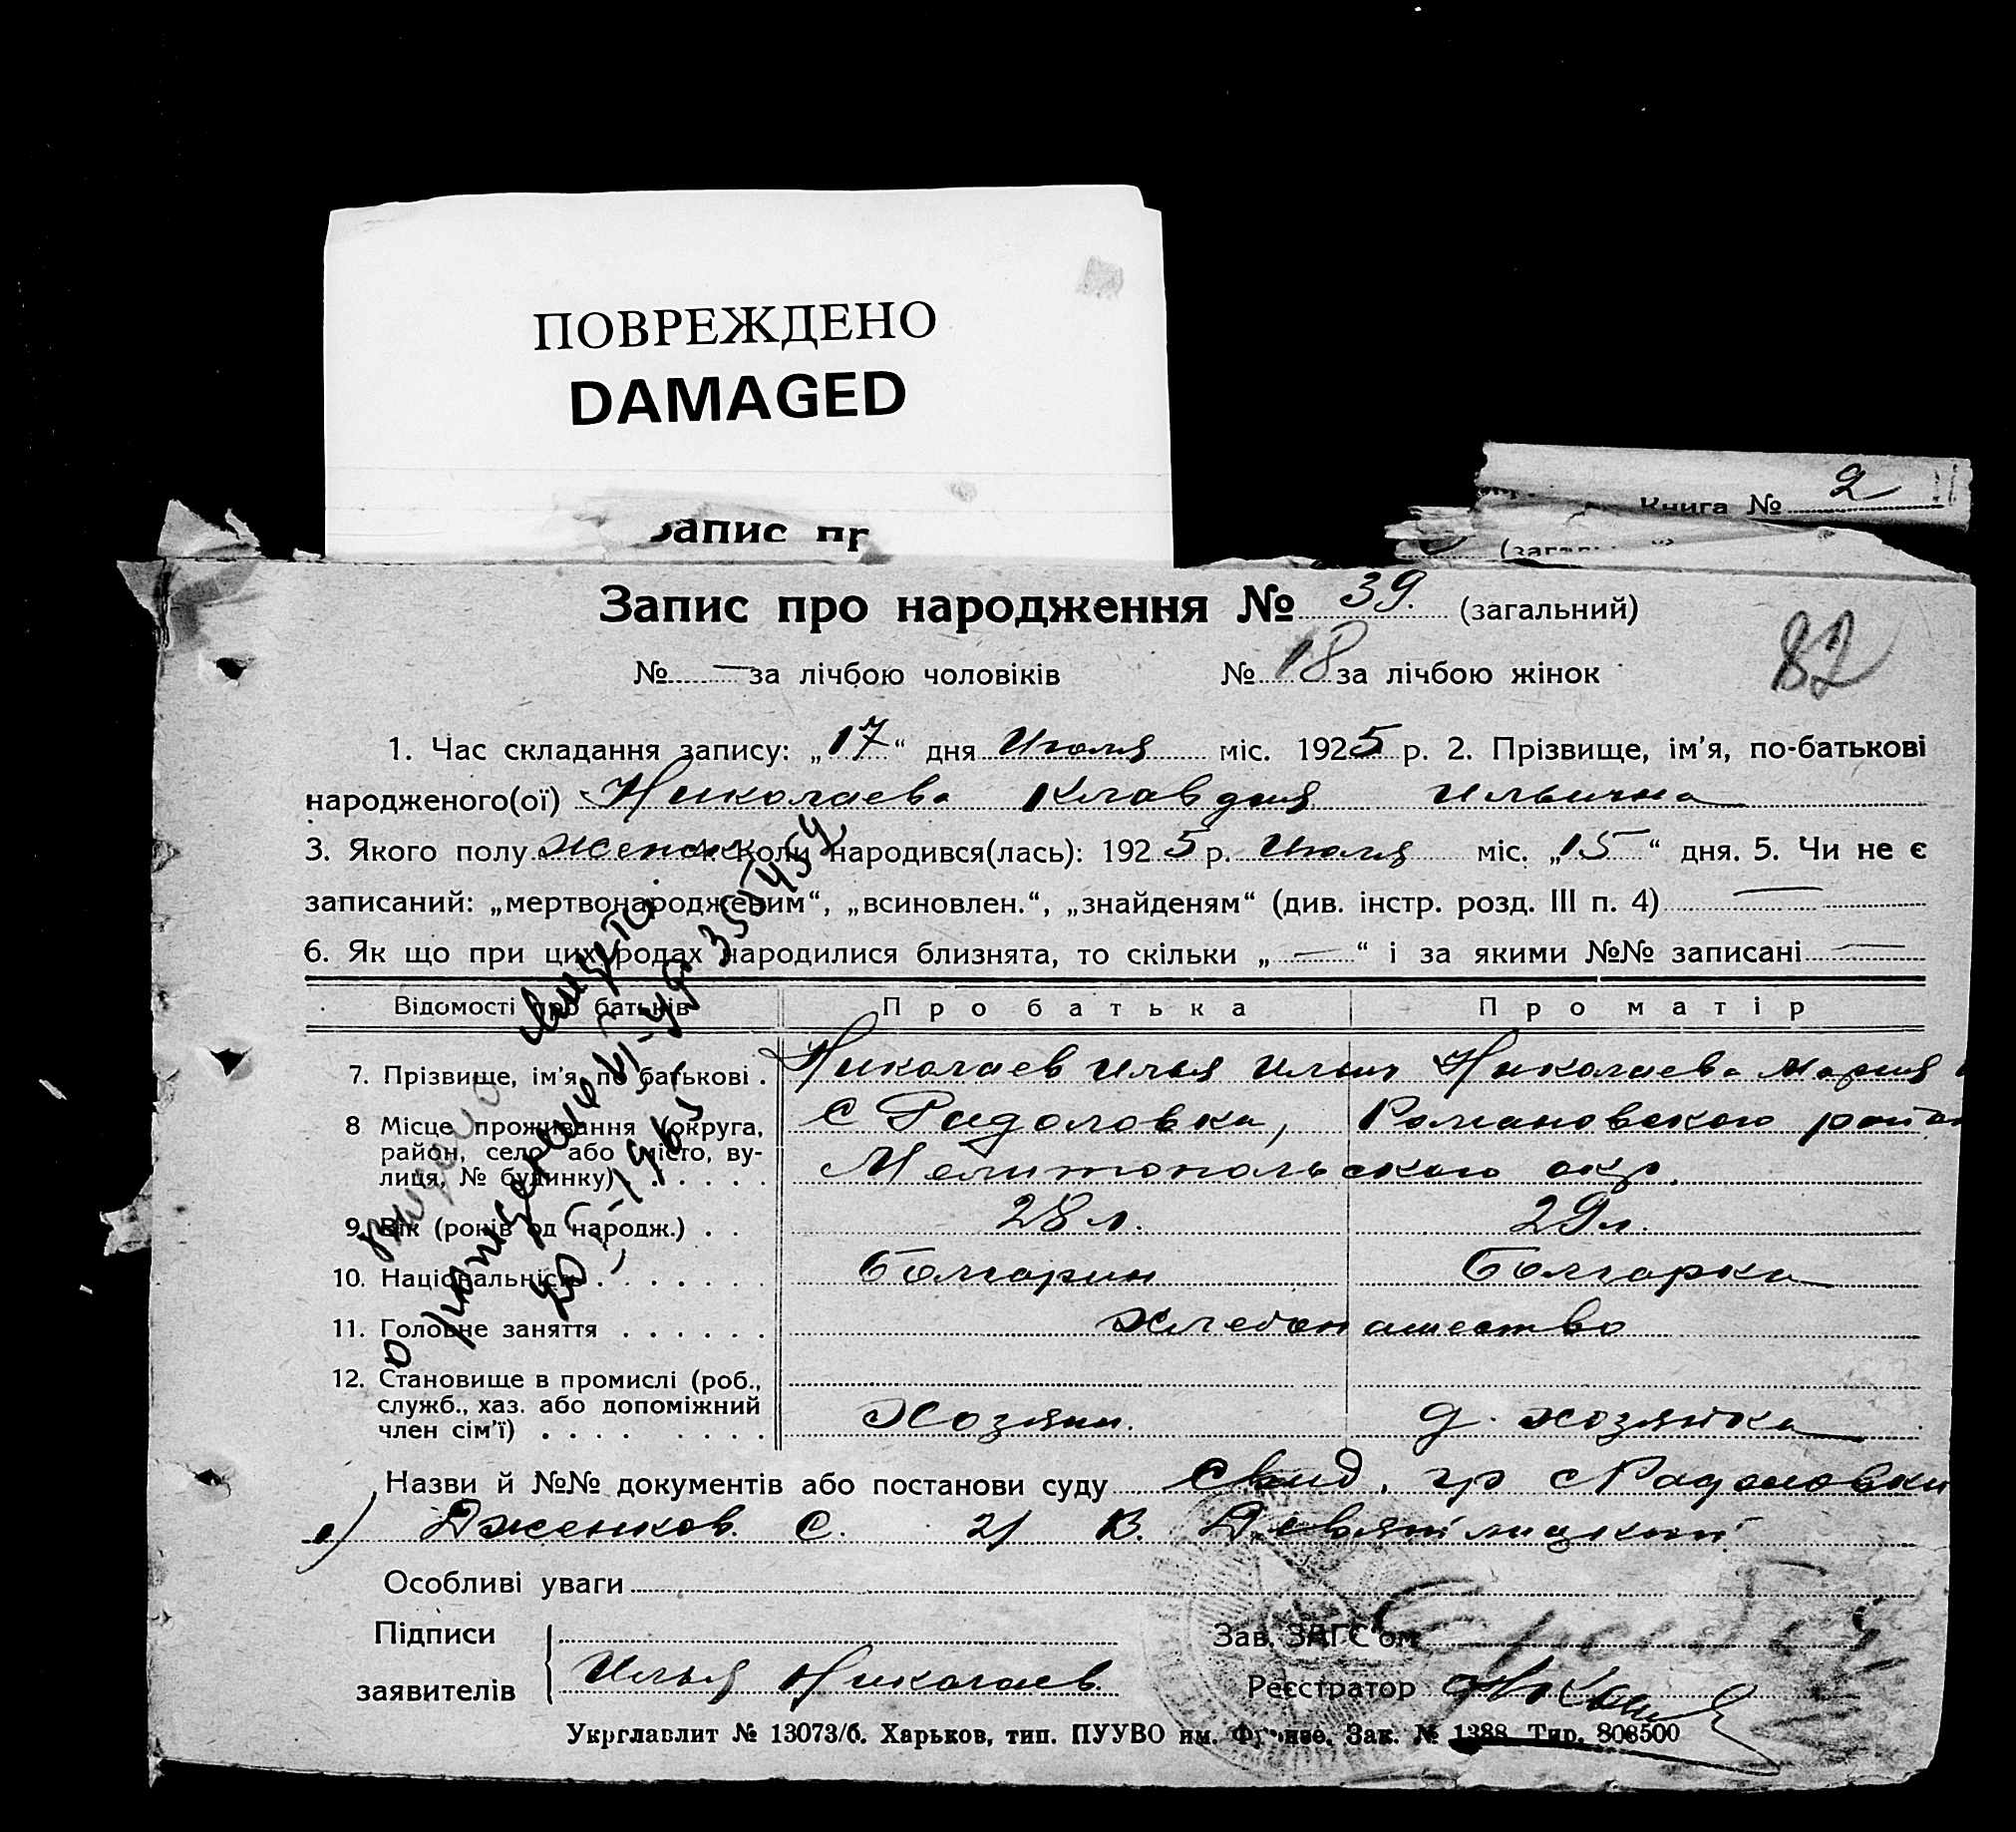 ПОВРЕЖДЕНО
DAMAGED
Запис пр
Книга № 2
Запис про народження № 39. (загальний)
82
№ — за лічбою чоловіків № 18 за лічбою жінок
1. Час складання запису: „17“ дня Июля міс. 1925 р. 2. Прізвище, ім’я, по-батькові
народженого(ої) Николаева Клавдия Ильична
3. Якого полу женск коли народився(лась): 1925 р. Июля міс. „15“ дня. 5. Чи не є
записаний: „мертвонародженим“, „всиновлен.“, „знайденям“ (див. інстр. розд. III п. 4) —
6. Як що при цих родах народилися близнята, то скільки „ — “ і за якими №№ записані —
Відомості про батьків Про батька Про матір
7. Прізвище, ім’я по батькові . Николаев Илья Ильич Николаева Мария
8 Місце проживання (округа, с Радоловка, Романовского район
район, село або місто, ву- Мелитопольского окр.
лиця, № будинку) . . . . . .
9. Вік (років од народж.) . . 28 л. 29 л.
10. Національність . . . . . . . Болгарин Болгарка
11. Головне заняття . . . . . . Хлебопашество
12. Становище в промислі (роб.,
служб., хаз. або допоміжний
член сім’ї) . . . . . . . . Хозяин. д. хозяйка
Назви й №№ документів або постанови суду Свид. гр с Радоловки
1) Дженков. С. 2) В.
Особливі уваги
Підписи Зав. ЗАГС’ом
заявителів Илья Николаев. Реєстратор
Укрглавлит № 13073/б. Харьков, тип. ПУУВО им. Фрунзе. Зак. № 1388 Тир. 808500